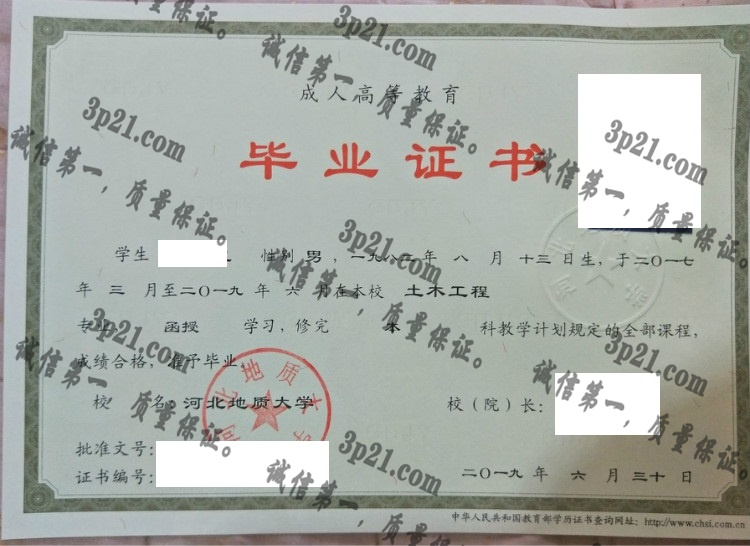 成人高等教育
毕业证书
学生 性别 男，一九八二年 八 月 十三 日生，于二〇一七
年 三 月至二〇一九 年 六 月在本校 土木工程
专业 函授 学习，修完 本 科教学计划规定的全部课程，
成绩合格，准予毕业。
校 名：河北地质大学 校（院）长：
批准文号：
证书编号： 二〇一九 年 六 月 三十 日
中华人民共和国教育部学历证书查询网址：http://www.chsi.com.cn
河北地质大学
3p21.com
诚信第一，质量保证。
3p21.com
诚信第一，质量保证。
3p21.com
诚信第一，质量保证。
3p21.com
诚信第一，质量保证。
3p21.com
诚信第一，质量保证。
3p21.com
诚信第一，质量保证。
3p21.com
诚信第一，质量保证。
3p21.com
诚信第一，质量保证。